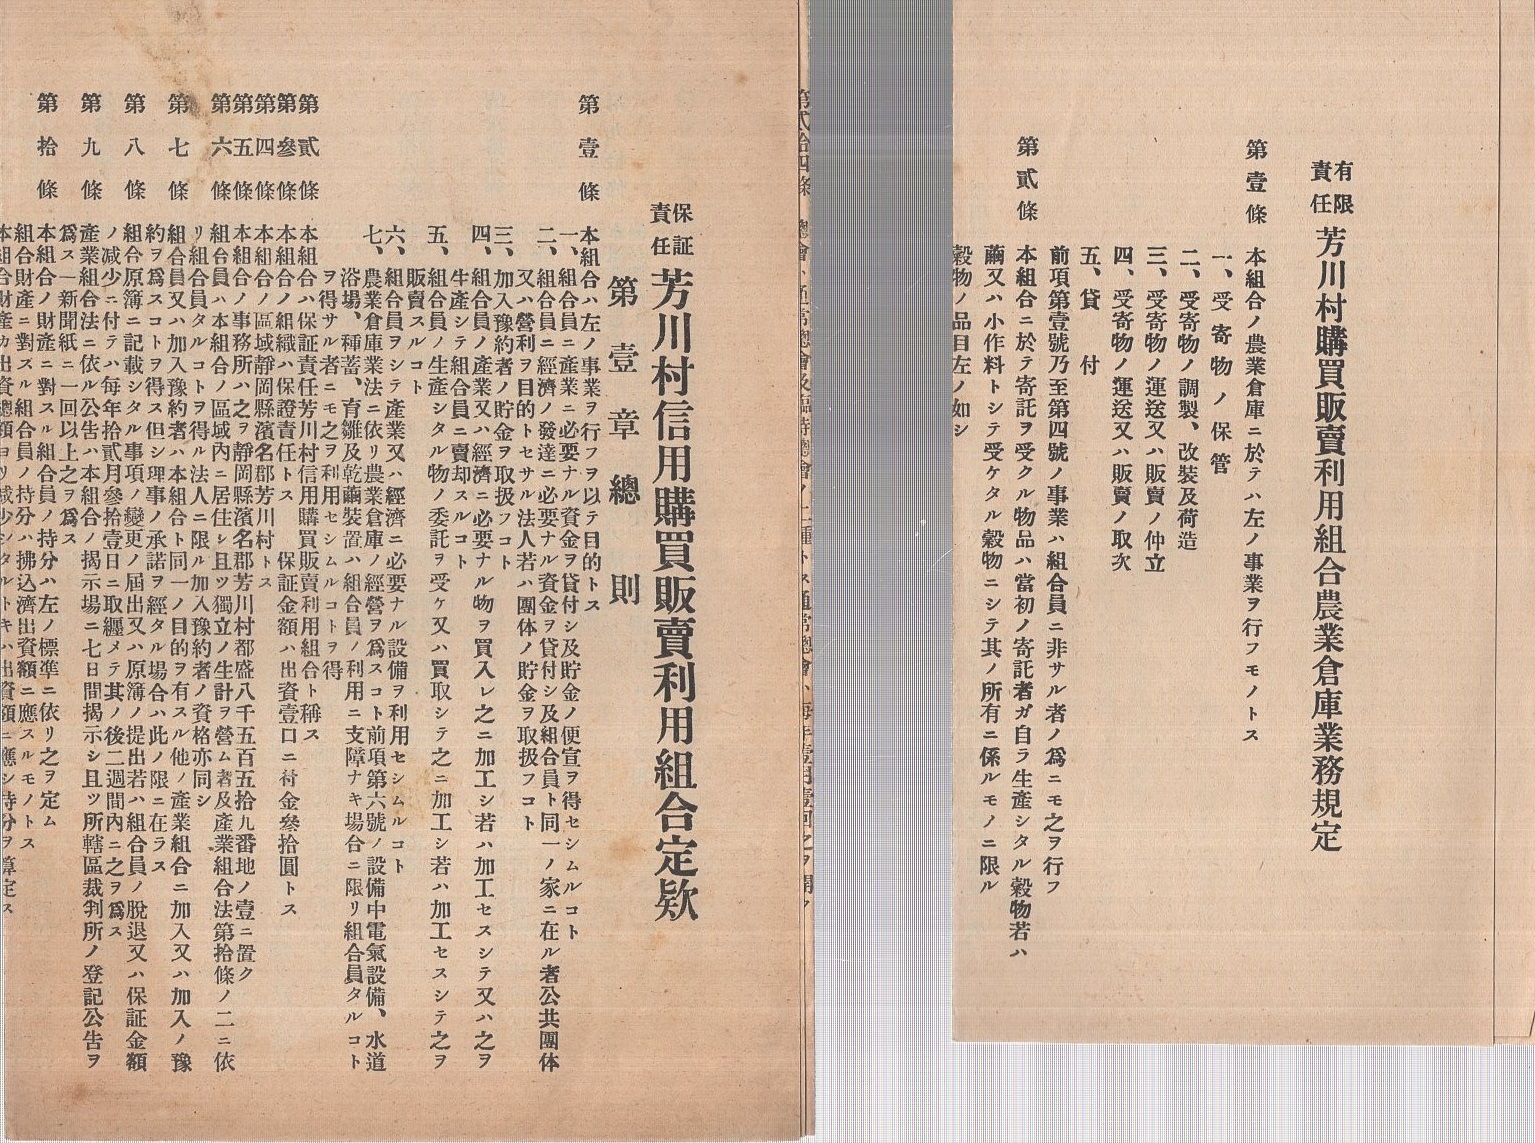 有限責任 芳川村購買販賣利用組合農業倉庫業務規定
第壹條 本組合ノ農業倉庫ニ於テハ左ノ事業ヲ行フモノトス
一、受寄物ノ保管
二、受寄物ノ調製、改裝及荷造
三、受寄物ノ運送又ハ販賣ノ仲立
四、受寄物ノ運送又ハ販賣ノ取次
五、貸付
前項第壹號乃至第四號ノ事業ハ組合員ニ非サル者ノ爲ニモ之ヲ行フ
第貳條 本組合ニ於テ寄託ヲ受クル物品ハ當初ノ寄託者ガ自ラ生產シタル穀物若ハ
繭又ハ小作料トシテ受ケタル穀物ニシテ其ノ所有ニ係ルモノニ限ル
穀物ノ品目左ノ如シ
第貳拾四條 總會ハ通常總會及臨時總會ノ二種トス通常總會ハ每年壹月壹回之ヲ開ク
保証責任 芳川村信用購買販賣利用組合定欵
第壹章 總則
第壹條 本組合ハ左ノ事業ヲ行フヲ以テ目的トス
一、組合員ニ產業ニ必要ナル資金ヲ貸付シ及貯金ノ便宜ヲ得セシムルコト
二、組合員ニ經濟ノ發達ニ必要ナル資金ヲ貸付シ及組合員ト同一ノ家ニ在ル者公共團体
又ハ營利ヲ目的トセサル法人若ハ團体ノ貯金ヲ取扱フコト
三、加入豫約者ノ貯金ヲ取扱フコト
四、組合員ノ產業又ハ經濟ニ必要ナル物ヲ買入レ之ニ加工シ若ハ加工セスシテ又ハ之ヲ
生產シテ組合員ニ賣却スルコト
五、組合員ノ生產シタル物ノ委託ヲ受ケ又ハ買取シテ之ニ加工シ若ハ加工セスシテ之ヲ
販賣スルコト
六、組合員ヲシテ產業又ハ經濟ニ必要ナル設備ヲ利用セシムルコト
七、農業倉庫業法ニ依リ農業倉庫ノ經營ヲ爲スコト前項第六號ノ設備中電氣設備、水道
浴場、種蓄、育雛及乾繭裝置ハ組合員ノ利用ニ支障ナキ場合ニ限リ組合員タルコト
ヲ得サル者ニモ之ヲ利用セシムルコトヲ得
第貳條 本組合ハ保証責任芳川村信用購買販賣利用組合ト稱ス
第參條 本組合ノ組織ハ保證責任トス 保証金額ハ出資壹口ニ付金參拾圓トス
第四條 本組合ノ區域靜岡縣濱名郡芳川村トス
第五條 本組合ノ事務所ハ之ヲ靜岡縣濱名郡芳川村都盛八千五百五拾九番地ノ壹ニ置ク
第六條 組合員ハ本組合ノ區域內ニ居住シ且ツ獨立ノ生計ヲ營ム者及產業組合法第拾條ノ二ニ依
リ組合員タルコトヲ得ル法人ニ限ル加入豫約者ノ資格亦同シ
第七條 組合員又ハ加入豫約者ハ本組合ト同一ノ目的ヲ有スル他ノ產業組合ニ加入又ハ加入ノ豫
約ヲ爲スコトヲ得ス但シ理事ノ承諾ヲ經タル場合ハ此ノ限ニ在ラス
第八條 組合原簿ニ記載シタル事項ノ變更ノ屆出又ハ原簿ノ提出若ハ組合員ノ脫退又ハ保証金額
ノ減少ニ付テハ每年拾貳月參拾壹日ニ取纒メテ其ノ後二週間內ニ之ヲ爲ス
第九條 產業組合法ニ依ル公告ハ本組合ノ揭示場ニ七日間揭示シ且ツ所轄區裁判所ノ登記公告ヲ
爲ス一新聞紙ニ一回以上之ヲ爲ス
第拾條 本組合ノ財產ニ對スル組合員ノ持分ハ左ノ標準ニ依リ之ヲ定ム
組合財產ニ對スル組合員ノ持分ハ拂込濟出資額ニ應スルモノトス
本組合財產カ出資總額ヨリ減少シタルトキハ出資額ニ應シ持分ヲ算定ス